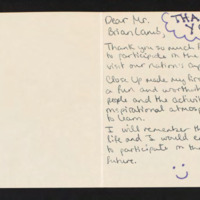 Dear Mr.
Brian Lamb,
THA
YO
Thank you so much
to participate in the
visit our nation's
Close Up made my
a fun and worthwh
people and the activit
inspirational atmosp
to learn.
I will remember th
life and I would e
to participate in th
future.